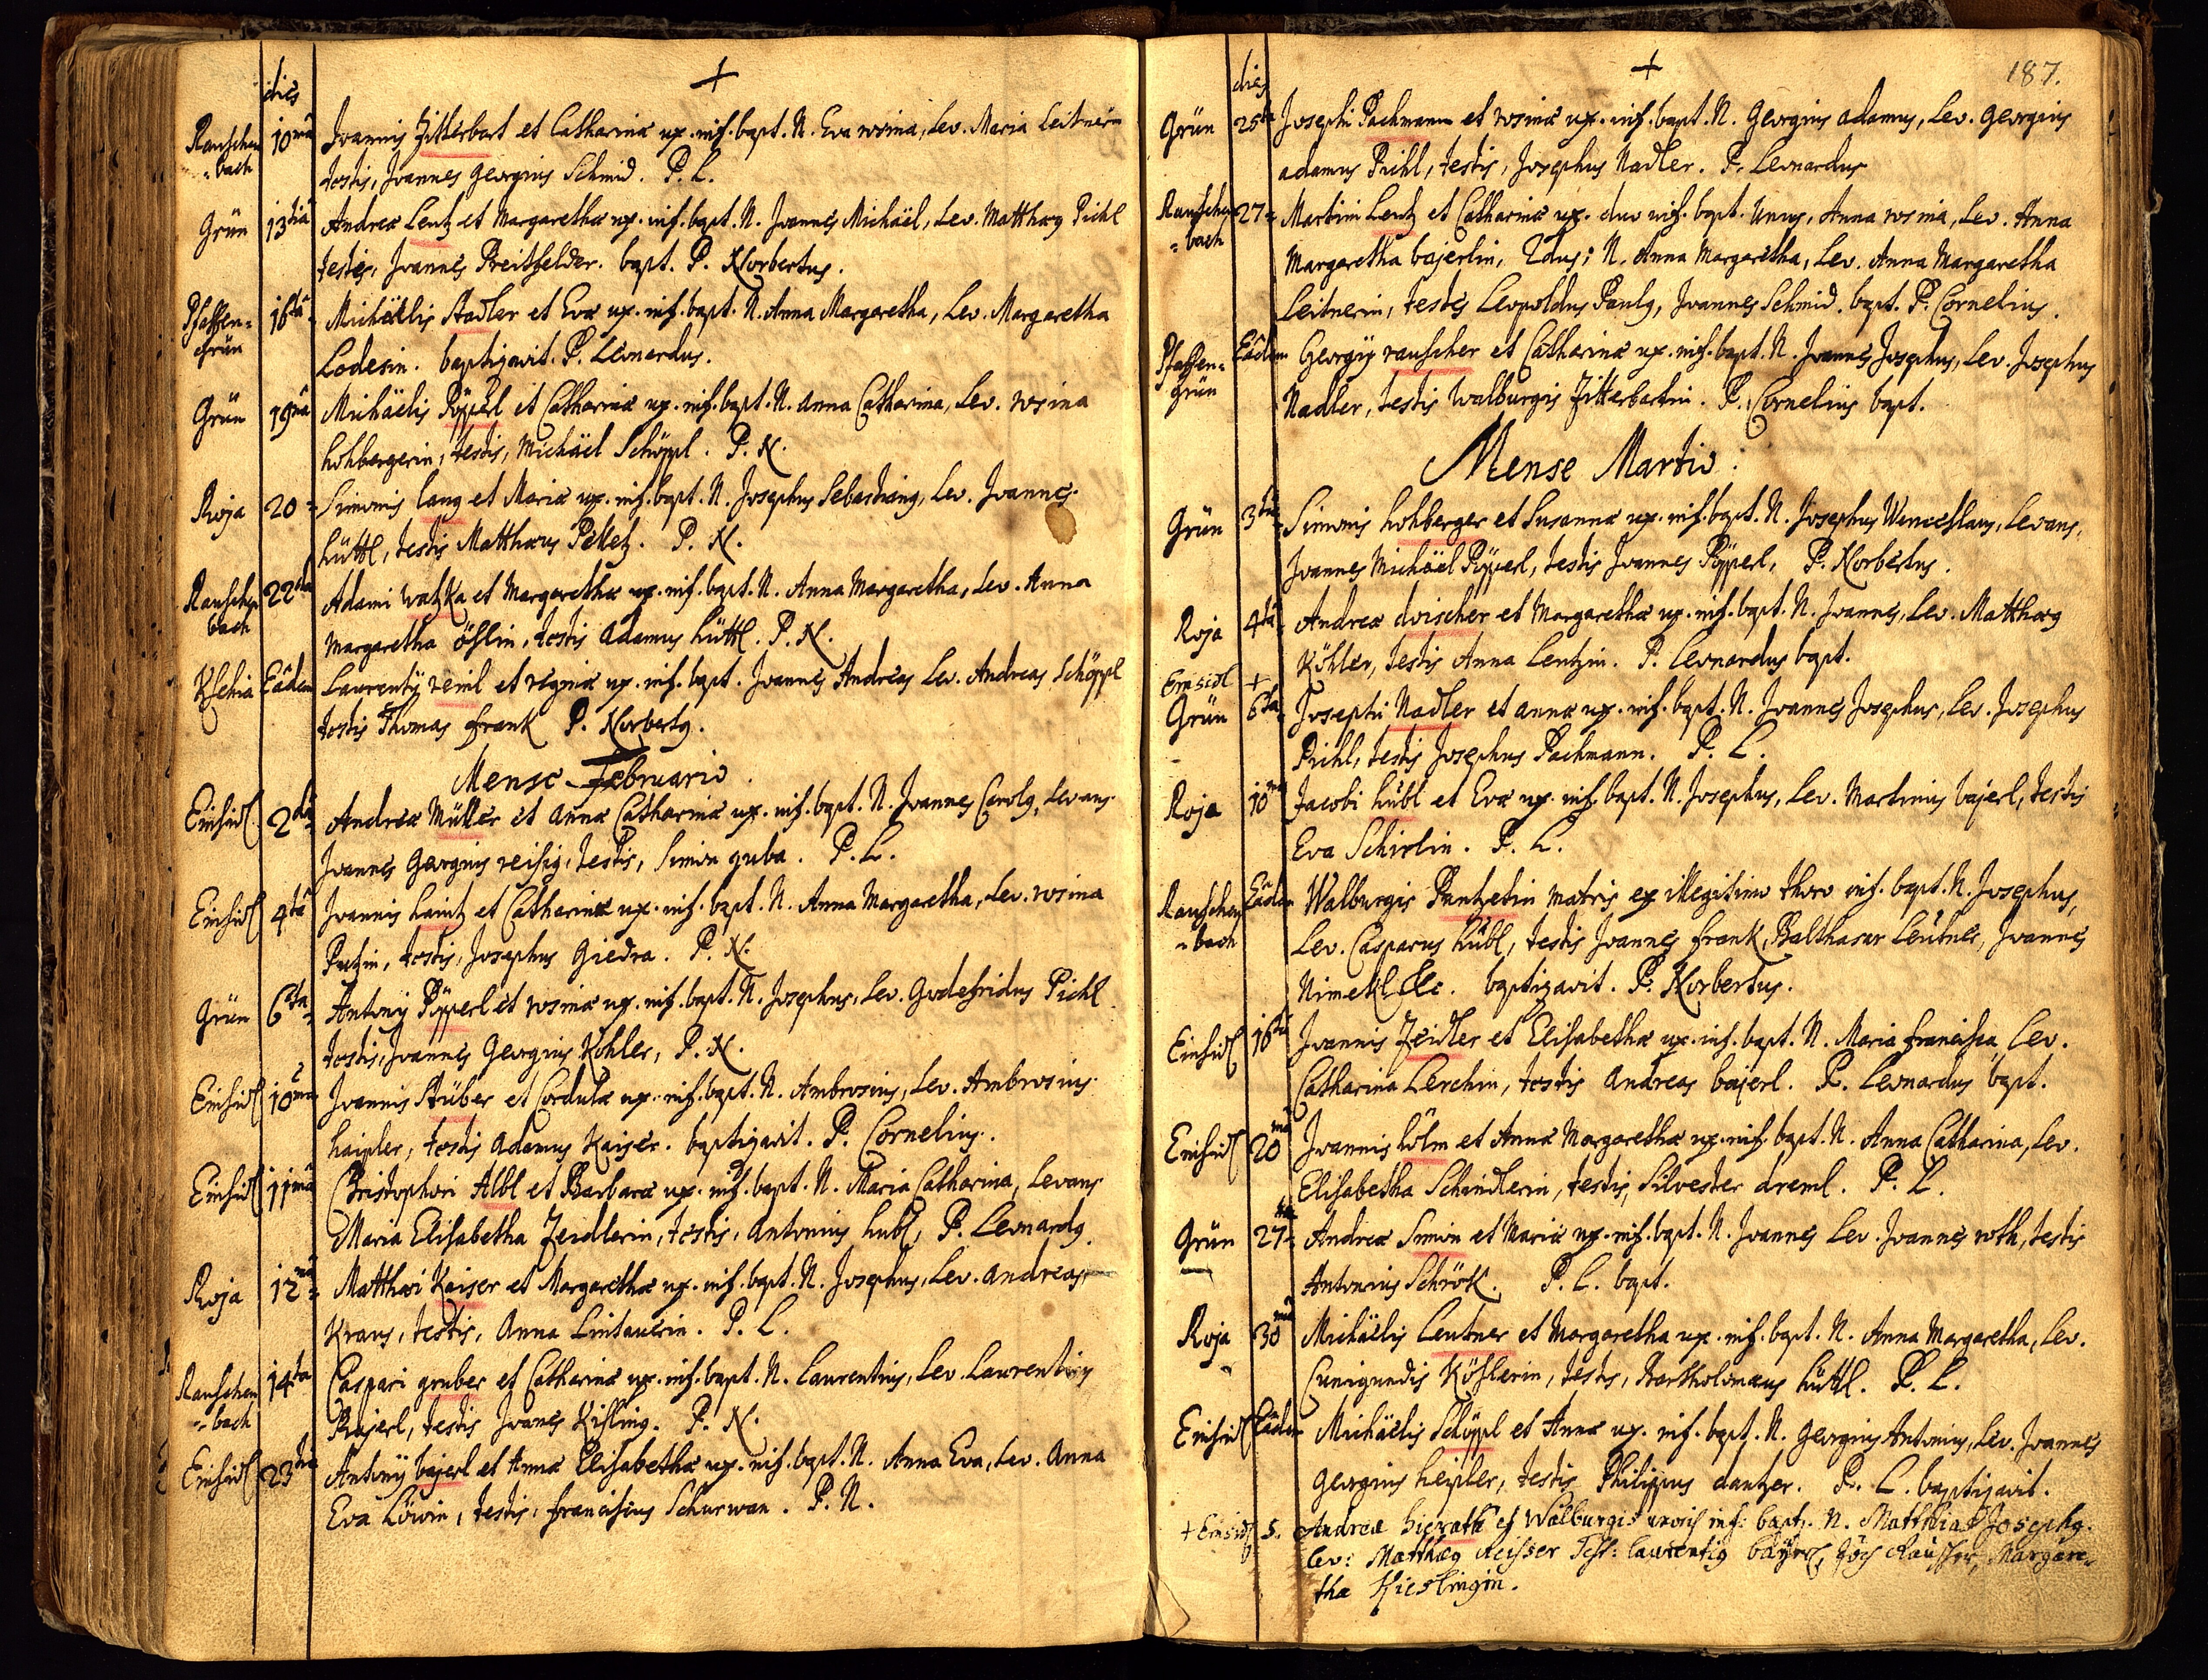 dies
Rauschen
=bach
10ma
Joannis Zitterbart et Catharinæ ux. inf. bapt. N. Eva rosina, Lev. Maria Leitnerin
testis, Joannes Georgius Schmid. P. L.
Grün 13tia Andreæ Lentz et Margarethæ ux. inf. bapt. N. Joannes Michaël, Lev. Matthæg Pichl
testes, Joannes Breitfelder. bapt. P. Norbertus.
Pfaffen=
Grün
16ta
Michaëlis Stadler et Evæ ux. inf. bapt. N. Anna Margaretha, Lev. Margaretha
Lodesin. baptizavit. P. Leonardus.
Grün 19na Michaëlis Pöpperl et Catharinæ ux. inf. bapt. N. Anna Catharina, Lev. rosina
hohbergerin, testis, Michaël Schöppl. P. N.
Roja 20= Simonis lang et Mariæ ux. inf. bapt. N. Josephus Sebastiang, Lev. Joannes
hüttl, testis Matthæus Pelletz. P. N.
Rauschen
bach
22da
Adami watzka et Margarethæ ux. inf. bapt. N. Anna Margaretha, Lev. Anna
Margaretha öslin, testis Adamus hüttl. P. N.
Kschia Eâdem Laurentÿ reinl et reginæ ux. inf. bapt. Joannes Andreas Lev. Andreas Schöppl
testis Thomas frank P. Norbertg.
Mense Februario.
Einsidl 2da Andreæ Müller et Annæ Catharinæ ux. inf. bapt. N. Joannes Carolg, Levans
Joannes Georgius reisig, testis, Simon guba. P. L.
Einsidl 4ta Joannis haintz et Catharinæ ux. inf. bapt. N. Anna Margaretha, Lev. rosina
Putzin, testis, Josephus Giedra. P. N.
Grün 6ta Antonÿ Pöpperl et rosinæ ux. inf. bapt. N. Josephus, Lev. Godefridus Pichl
testis, Joannes Georgius Köhler, P. N.
Einsidl 10ma Joannis Stüber et Cordulæ ux. inf. bapt. N. Ambrosius, Lev. Ambrosius
haipler, testis Adamus Kaiser. baptizavit. P. Cornelius.
Einsidl 11ma Christophori Albl et Barbaræ ux. inf. bapt. N. Maria Catharina, Levans
Maria Elisabetha Zeidlerin, testis, Antonius hubl, P. Leonardg.
Roja 12ma Matthæi Kaiser et Margarethæ ux. inf. bapt. N. Josephus, Lev. Andreas
Kraus, testis, Anna Lintauerin. P. L.
Rauschen
=bach
14ta
Caspari gruber et Catharinæ ux. inf. bapt. N. Laurentius, Lev. Laurentius
Bajerl, testis Joanes Kisling. P. N.
Einsidl 23tia Antonÿ bajerl et Annæ Elisabethæ ux. inf. bapt. N. Anna Eva, Lev. Anna
Eva Löwin, testis, franciscus Schurwan. P. N.
187.
dies
Grün 25ta Josephi Pachmann et rosinæ ux. inf. bapt. N. Georgius Adamus, Lev. Georgius
Adamus Pichl, testis, Josephus Nadler. P. Leonardus
Rauschen
=bach
27=
Martini Lentz et Catharinæ ux. duo inf. bapt. Unus, Anna rosina, Lev. Anna
Margaretha bajerlin, 2dus; N. Anna Margaretha, Lev. Anna Margaretha
Leitnerin, testes Leopoldus Paulg, Joannes Schmid. bapt. P. Cornelius.
Pfaffen=
grün
Eâdem
Georgÿ rauscher et Catharinæ ux. inf. bapt. N. Joannes Josephus, Lev. Josephus
Nadler, testis walburgis Zitterbartin. P. Cornelius bapt.
Mense Martio.
Grün 3tia Simonis hohberger et Susannæ ux. inf. bapt. N. Josephus Wenceslaus, Levans,
Joannes Michaël Pöpperl, testis Joannes Pöpperl, P. Norbertus.
Roja 4ta Andreæ drischer et Margarethæ ux. inf. bapt. N. Joannes, Lev. Matthæg
Köhler, testis Anna Lentzin. P. Leonardus bapt.
Einsidl +
Grün 6ta Josephi Nadler et annæ ux. inf. bapt. N. Joannes Josephus, Lev. Josephus
Pichl, testis Josephus Pachmann. P. L.
Roja 10ma Jacobi hübl et Evæ ux. inf. bapt. N. Josephus, Lev. Martinus bajerl, testis
Eva Schirlin. P. L.
Rauschen
=bach
Eâdem
Walburgis Pantzetin matris ex illegitimo thoro inf. bapt. N. Josephus,
Lev. Casparus hübl, testis Joannes frank, Balthasar Leutner, Joannes
Nimetl Etc. baptizavit. P. Norbertus.
Einsidl 16ta Joannis Zeidler et Elisabethæ ux. inf. bapt. N. Maria francisca, Lev.
Catharina Lerchin, testis Andreas bajerl. P. Leonardus bapt.
Einsidl 20ma Joannis hölm et Annæ Margarethæ ux. inf. bapt. N. Anna Catharina, Lev.
Elisabetha Schindlerin, testis, Silvester dreml. P. L.
Grün 27ma Andreæ Simon et Mariæ ux. inf. bapt. N. Joannes Lev. Joannes roth, testis
Antonius Schrök. P. L. bapt.
Roja 30ma Michaëlis Leutner et Margaretha ux. inf. bapt. N. Anna Margaretha, Lev.
Cunigundis Köhlerin, testis, Bartholomæus hüttl. P. L.
Einsidl Eâdem Michaëlis Schöppl et Annæ ux. inf. bapt. N. Georgius Antonius, Lev. Joannes
Georgius heipler, testis Philippus dantzer. P. L. baptizavit.
+ Einsidl 5. Andreæ hierath et Walburgis uxoris inf: bapt. N. Matthias Josephg.
lev: Matthæg Reisser Test: laurentig bayerl, Rausser, Margare=
tha Kieslingin.